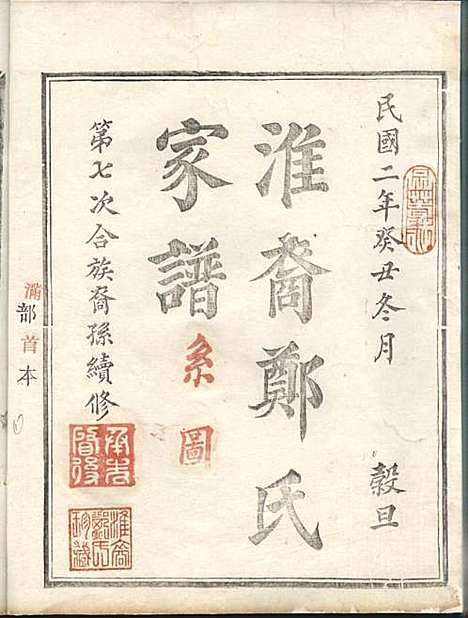 民國二年癸丑冬月 穀旦
淮裔鄭氏
家譜系圖
第七次合族裔孫續修
承先啓後
淮裔鄭氏珍藏
部首本